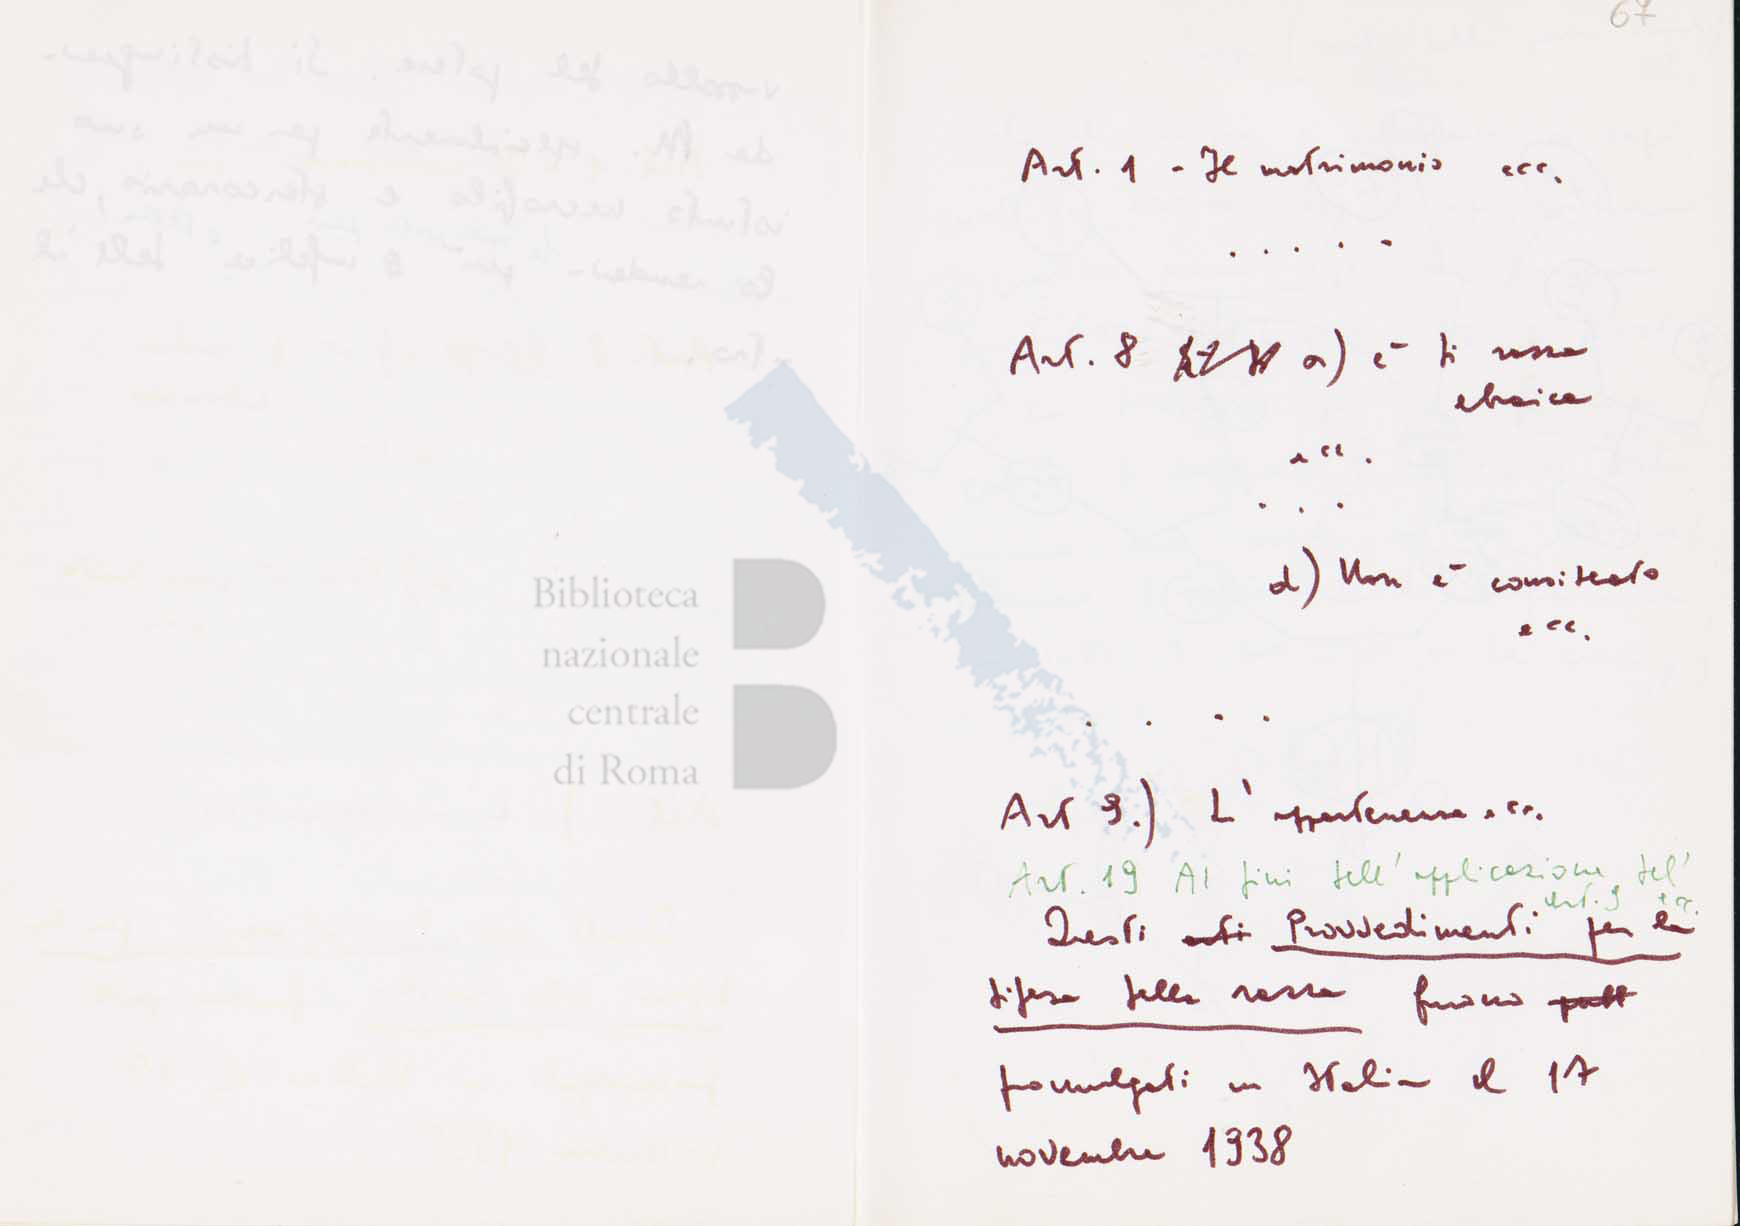 67
Art. 1 - Il matrimonio ecc.
. . . . .
Art. 8 a) è di razza
ebraica
ecc.
. . .
d) Non è considerato
ecc.
. . . .
Art 9.) L'appartenenza ecc.
Art. 19 Ai fini dell'applicazione dell'
art. 9 ecc.
Questi atti Provvedimenti per la
difesa della razza furono
promulgati in Italia il 17
novembre 1938
Biblioteca
nazionale
centrale
di Roma